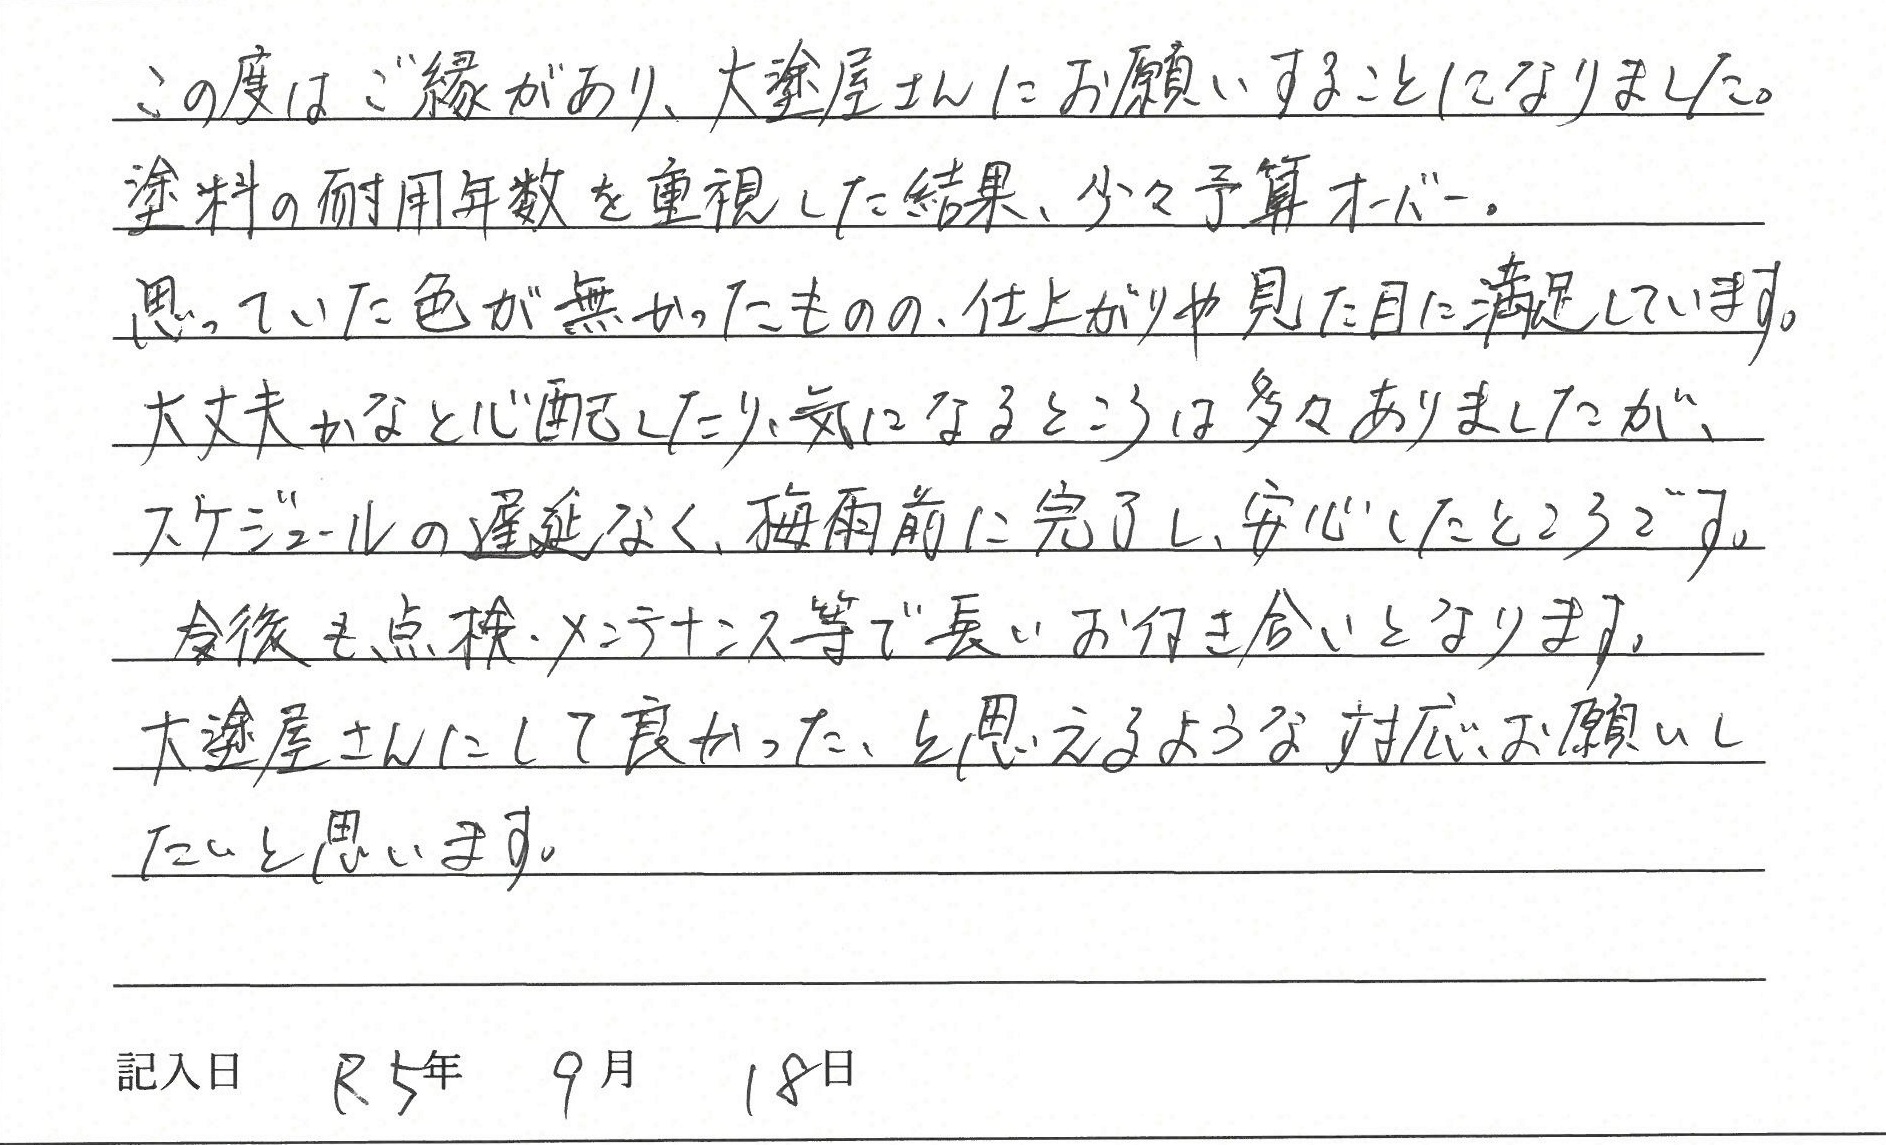 この度はご縁があり、大塗屋さんにお願いすることになりました。
塗料の耐用年数を重視した結果、少々予算オーバー。
思っていた色が無かったものの、仕上がりや見た目に満足しています。
大丈夫かなと心配したり、気になるところは多々ありましたが、
スケジュールの遅延なく、梅雨前に完了し、安心したところです。
今後も、点検・メンテナンス等で長いお付き合いとなります。
大塗屋さんにして良かった、と思えるような対応、お願いし
たいと思います。
記入日 R5年 9月 18日